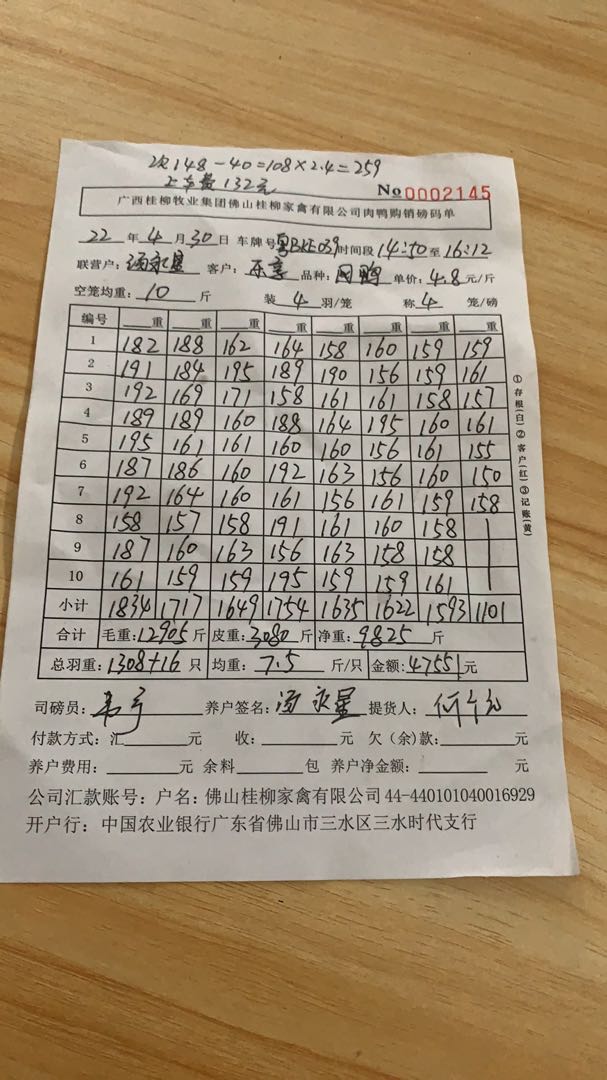 次148-40=108×2.4=259
上车费132元
No 0002145
广西桂柳牧业集团佛山桂柳家禽有限公司肉鸭购销磅码单
22年4月30日 车牌号粤BKE039时间段14:50至16:12
联营户:汤永星 客户: 品种: 鸭 单价:4.8元/斤
空笼均重:10斤 装4羽/笼 称4笼/磅
编号 重 重 重 重 重 重 重 重
1 182 188 162 164 158 160 159 159
2 191 184 195 189 190 156 159 161
3 192 169 171 158 161 161 158 157
4 189 189 160 188 164 195 160 161
5 195 161 161 160 160 156 161 155
6 187 186 160 192 163 156 160 150
7 192 164 160 161 156 161 159 158
8 158 157 158 191 161 160 158
9 187 160 163 156 163 158 158
10 161 159 159 195 159 159 161
小计 1834 1717 1649 1754 1635 1622 1593 1101
合计 毛重:12905斤 皮重:3080斤 净重:9825斤
总羽重:1308+16只 均重:7.5斤/只 金额:47551元
司磅员: 养户签名:汤永星 提货人:
付款方式:汇 元 收: 元 欠(余)款: 元
养户费用: 元 余料 包 养户净金额: 元
公司汇款账号:户名:佛山桂柳家禽有限公司44-440101040016929
开户行:中国农业银行广东省佛山市三水区三水时代支行
①存根(白)②客户(红)③记账(黄)